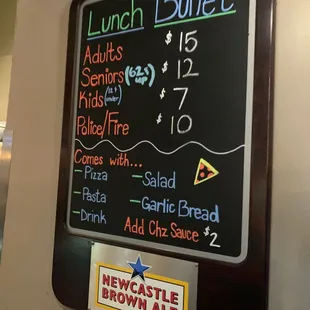 Lunch Buffet
Adults $15
Seniors (62 & up) $12
Kids (12 & under) $7
Police/Fire $10
Comes with...
- Pizza - Salad
- Pasta - Garlic Bread
- Drink Add Chz Sauce $2
NEWCASTLE
BROWN ALE